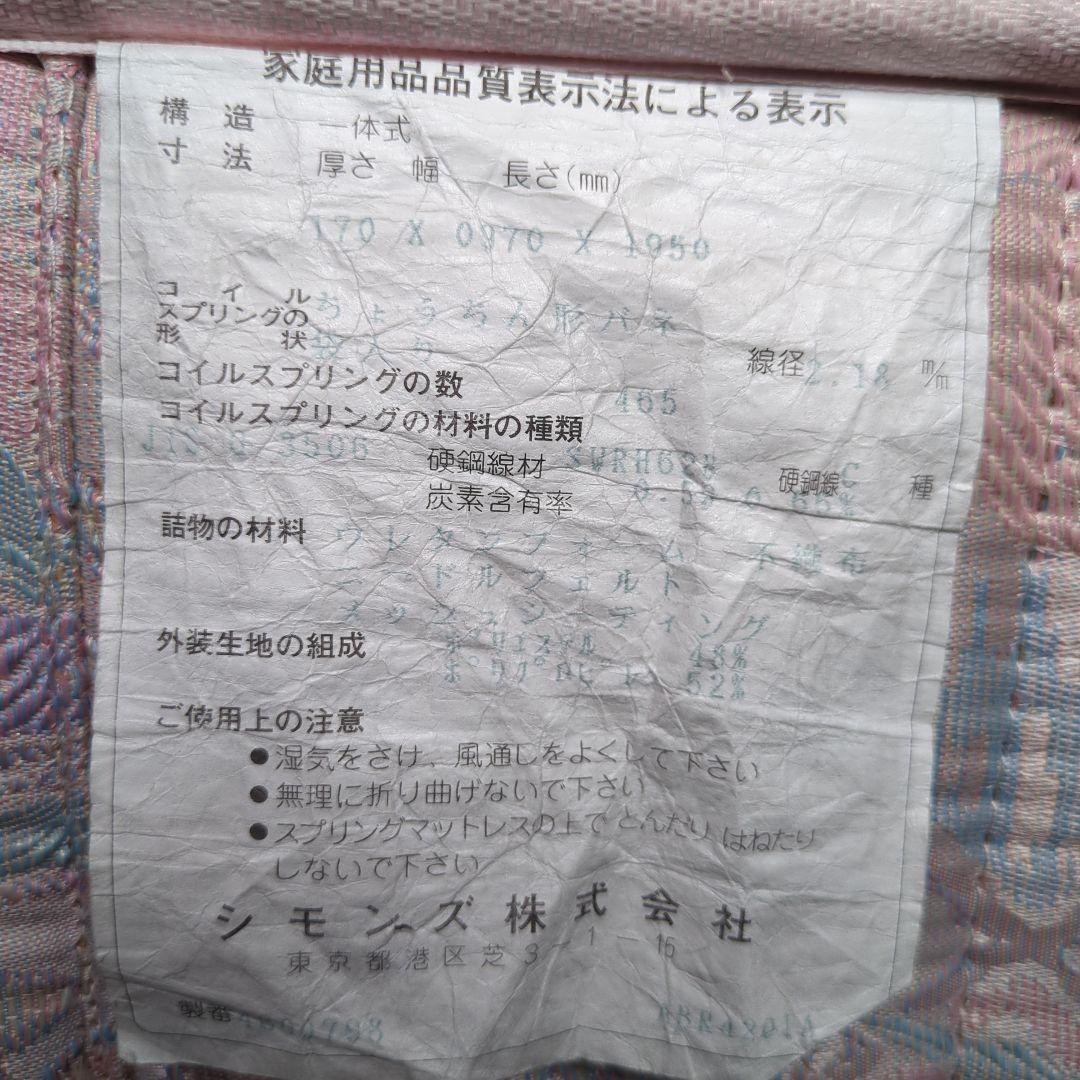 家庭用品品質表示法による表示
構造 一体式
寸法 厚さ 幅 長さ(mm)
170 X 0970 X 1950
コイルスプリングの形状 ちょうちん形バネ
袋入り
線径 2.18 m/m
コイルスプリングの数 465
コイルスプリングの材料の種類
JIS G 3506 硬鋼線材 SWRH62 硬鋼線 C 種
炭素含有率
詰物の材料 ウレタンフォーム 不織布
ニードルフェルト
外装生地の組成 ポリエステル 48%
ポリプロピレン 52%
ご使用上の注意
●湿気をさけ、風通しをよくして下さい
●無理に折り曲げないで下さい
●スプリングマットレスの上でとんだりはねたり
しないで下さい
シモンズ株式会社
東京都港区芝3-1-16
製番